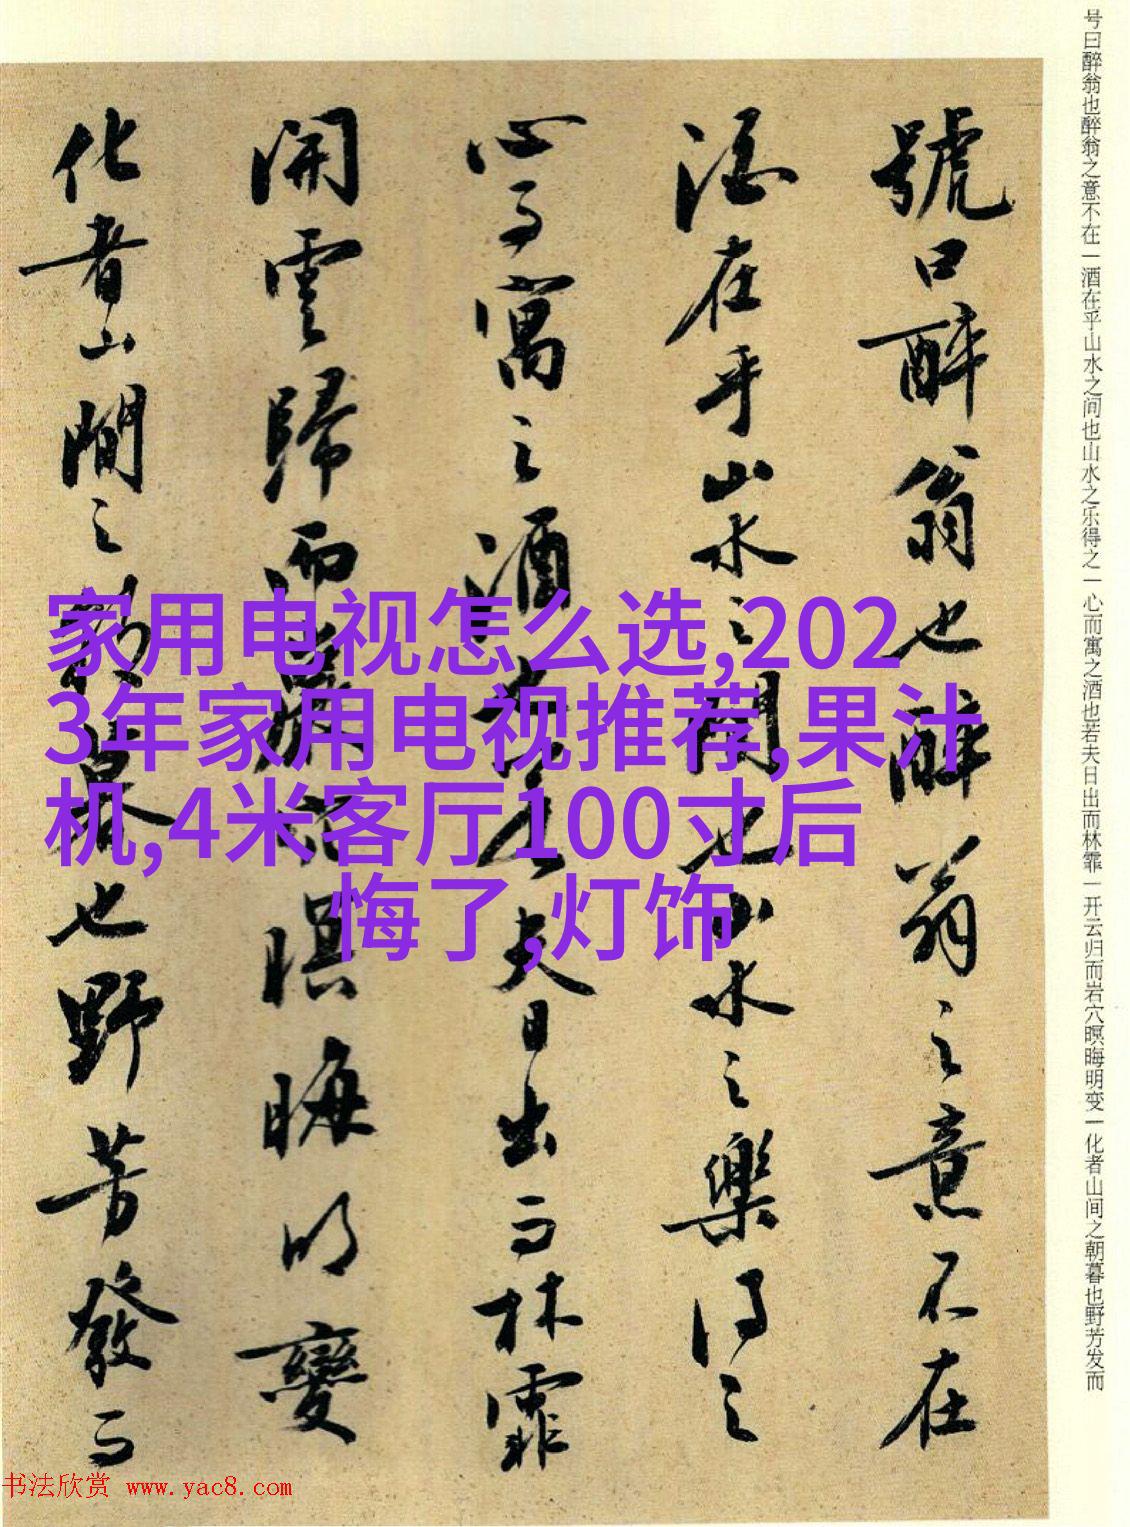 号曰醉翁也醉翁之意不在一酒在乎山水之间也山水之乐得之一心而寓之酒也若夫日出而林霏一开云归而岩穴暝晦明变一化者山间之朝暮也野芳发而
號曰醉翁也醉翁之意不在
酒在乎山水之間也山水之樂得之
心而寓之酒也若夫日出而林霏
開雲歸而巖穴暝晦明變
化者山間之朝暮也野芳發而
家用电视怎么选,202
3年家用电视推荐,果汁
机,4米客厅100寸后
悔了,灯饰
书法欣赏 www.yac8.com